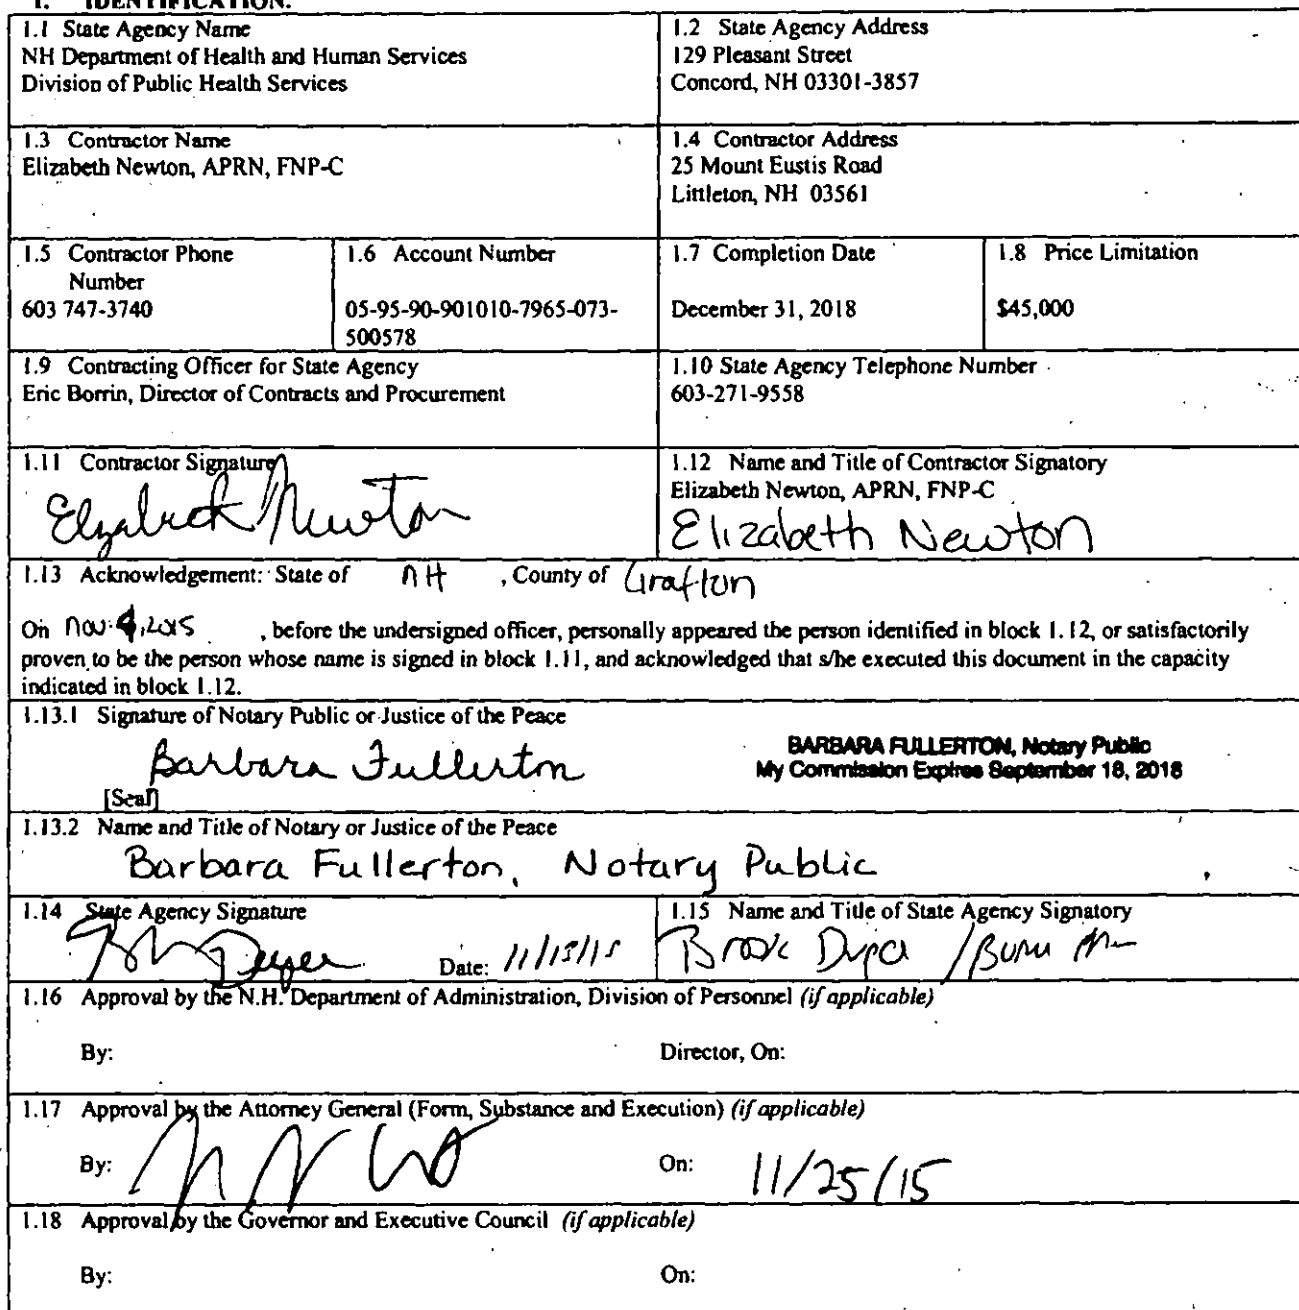 1. IDENTIFICATION.
1.1 State Agency Name
NH Department of Health and Human Services
Division of Public Health Services
1.2 State Agency Address
129 Pleasant Street
Concord, NH 03301-3857
1.3 Contractor Name
Elizabeth Newton, APRN, FNP-C
1.4 Contractor Address
25 Mount Eustis Road
Littleton, NH 03561
1.5 Contractor Phone
Number
603 747-3740
1.6 Account Number
05-95-90-901010-7965-073-
500578
1.7 Completion Date
December 31, 2018
1.8 Price Limitation
$45,000
1.9 Contracting Officer for State Agency
Eric Borrin, Director of Contracts and Procurement
1.10 State Agency Telephone Number
603-271-9558
1.11 Contractor Signature
Elizabeth Newton
1.12 Name and Title of Contractor Signatory
Elizabeth Newton, APRN, FNP-C
Elizabeth Newton
1.13 Acknowledgement: State of NH , County of Grafton
On Nov. 4, 2015 , before the undersigned officer, personally appeared the person identified in block 1.12, or satisfactorily
proven to be the person whose name is signed in block 1.11, and acknowledged that s/he executed this document in the capacity
indicated in block 1.12.
1.13.1 Signature of Notary Public or Justice of the Peace
Barbara Fullerton
BARBARA FULLERTON, Notary Public
My Commission Expires September 18, 2018
[Seal]
1.13.2 Name and Title of Notary or Justice of the Peace
Barbara Fullerton, Notary Public
1.14 State Agency Signature
Date: 11/15/15
1.15 Name and Title of State Agency Signatory
Brook Dupee
1.16 Approval by the N.H. Department of Administration, Division of Personnel (if applicable)
By:
Director, On:
1.17 Approval by the Attorney General (Form, Substance and Execution) (if applicable)
By:
On: 11/25/15
1.18 Approval by the Governor and Executive Council (if applicable)
By:
On: